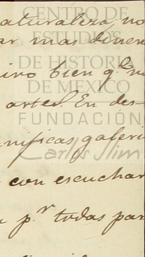 CENTRO DE
ESTUDIOS
DE HISTORIA
DE MÉXICO
FUNDACIÓN
Carlos Slim
naturaleza, no
mas dinero
bien q.e
artes. En des-
nificas galeri
con escuchar
p.r todas par